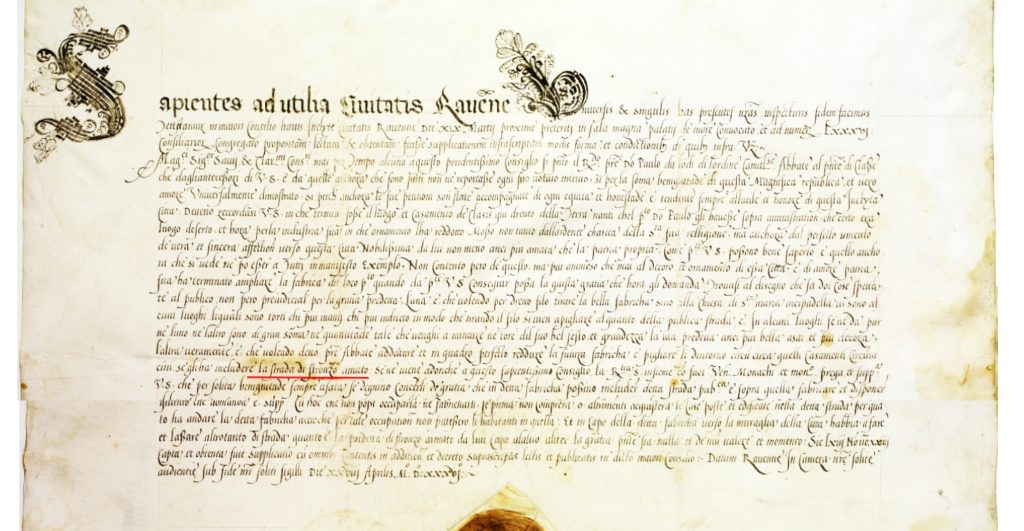 Sapientes ad utilia Civitatis Ravenne Universis & singulis has presentes nras inspecturis fidem facimus
in maiori Consilio huius Inclyte Civitatis Ravenne Die XIX Martij proxime preteriti in sala magna palatij de more Convocato et ad numer LXXXVI
Consiliarior Congregato propositam lectam & obtentam fuisse supplicationem infrascriptam modis forma et conditionib de quib infra Vz
Mag.ci Sig.ri Savij & Clar.mi Cons.ri mai per tempo alcuno a questo prudentissimo Consiglio si porto il R.do pre Do Paulo da Lodi di l'ordine Camal. Abbate al pnte di Classe
che da gli antecessori di V.S. e da quelle anchora che sono pnti non ne reportasse ogni suo votivo intento. Si per la somma benignitade di questa Magnifica republica et verso
amore Universalmente dimostrato. si perche anchora le sue petitioni son state accompagnate di ogni equita et honestade, e tendente sempre all'utile et honore di questa Inclyta
Citta. Diveno recordarsi V.S. in che termini fosse il luogo et Casamento de Classis qui dentro della Terra nanti chel pto Do Paulo gli havesse sopra aministration che certo era
luogo deserto. et hora per la industria sua in che ornamento l'ha redotto. Mosso non tanto dall'ardente charita della S.ta sua religione. ma anchora dal perfetto
de vera et sincera affettion verso questa Citta Nobilissima da lui non meno anci piu amata che la patria propria. Come pte V.S. possono bene saperlo e quello ancho
ra che si vede ne po esser a Tutti in manifesto Exemplo. Non Contento pero de questo. ma piu animoso che mai al Decoro et ornamento di essa Citta e di amore patria,
sua ha terminato ampliare la fabrica di loco pto quando da pte V.S. Conseguir possa la giusta gratia che hora gli domanda. Trovasi al disegno che fa doi Cose spectan
te al publico, non pero preiudicial per la gratia predetta. L'una è che volendo per dreto filo tirare la bella fabricha sino alla Chiesa di S.ta maria incipadella vi sono al
cuni luoghi li quali sono torti chi piu inanti chi piu indreto in modo che tirando il filo si vien a pigliare alquanto della publica strada e In alcuni luoghi se ne da pur
ne l'uno ne l'altro sono di gran soma ne quantitade tale che venghi a minuire ne tore del suo bel sesto et grandezza la via predetta anci piu bella assai et piu decora.
l'altra veramente, è che volendo detto pre Abbate addatare et in quadro perfetto redduze la futura fabricha e pigliare li d'intorno circa quelli Casamenti
cun seglina includere la strada di stronzo amato. Se ne viene adonche a questo sapientissimo Consiglio, la R.tia S. insieme co suoi Ven. Monachi et mon. prega et supp.ca
V.S. che per solita benignitade sempre usata se degnino Concerli de gratia che in detta fabricha possino includer detta strada pub.ca e sopra quella fabricare et disponer
quanto che et supp. Cu hoc che non possi occuparla ne fabricharli. se prima non Comprera o altrimenti acquistera le Case poste et edificate nella detta strada per qua
to ha andare la detta fabricha acioche per tale occupation non patessero li habitanti in quella. Et in capo della detta fabricha verso la muraglia della Citta habbia a fare
et lassare altrotanto di strada quanto è la predetta di stronzo armato da l'un capo alaltro aliter la gratia pnta sia nulla et de niu valore et momento. Die
Capta et obtenta fuit Supplicatio cu omnib Contentis in additione et decreto Suprascriptis lectis et publicatis in dicto maiori Consilio. Datum Ravenne In Camera nre solite
audientie sub fide nri soliti sigilli Die XXVIIJ Aprilis M. D. XXXVJ.